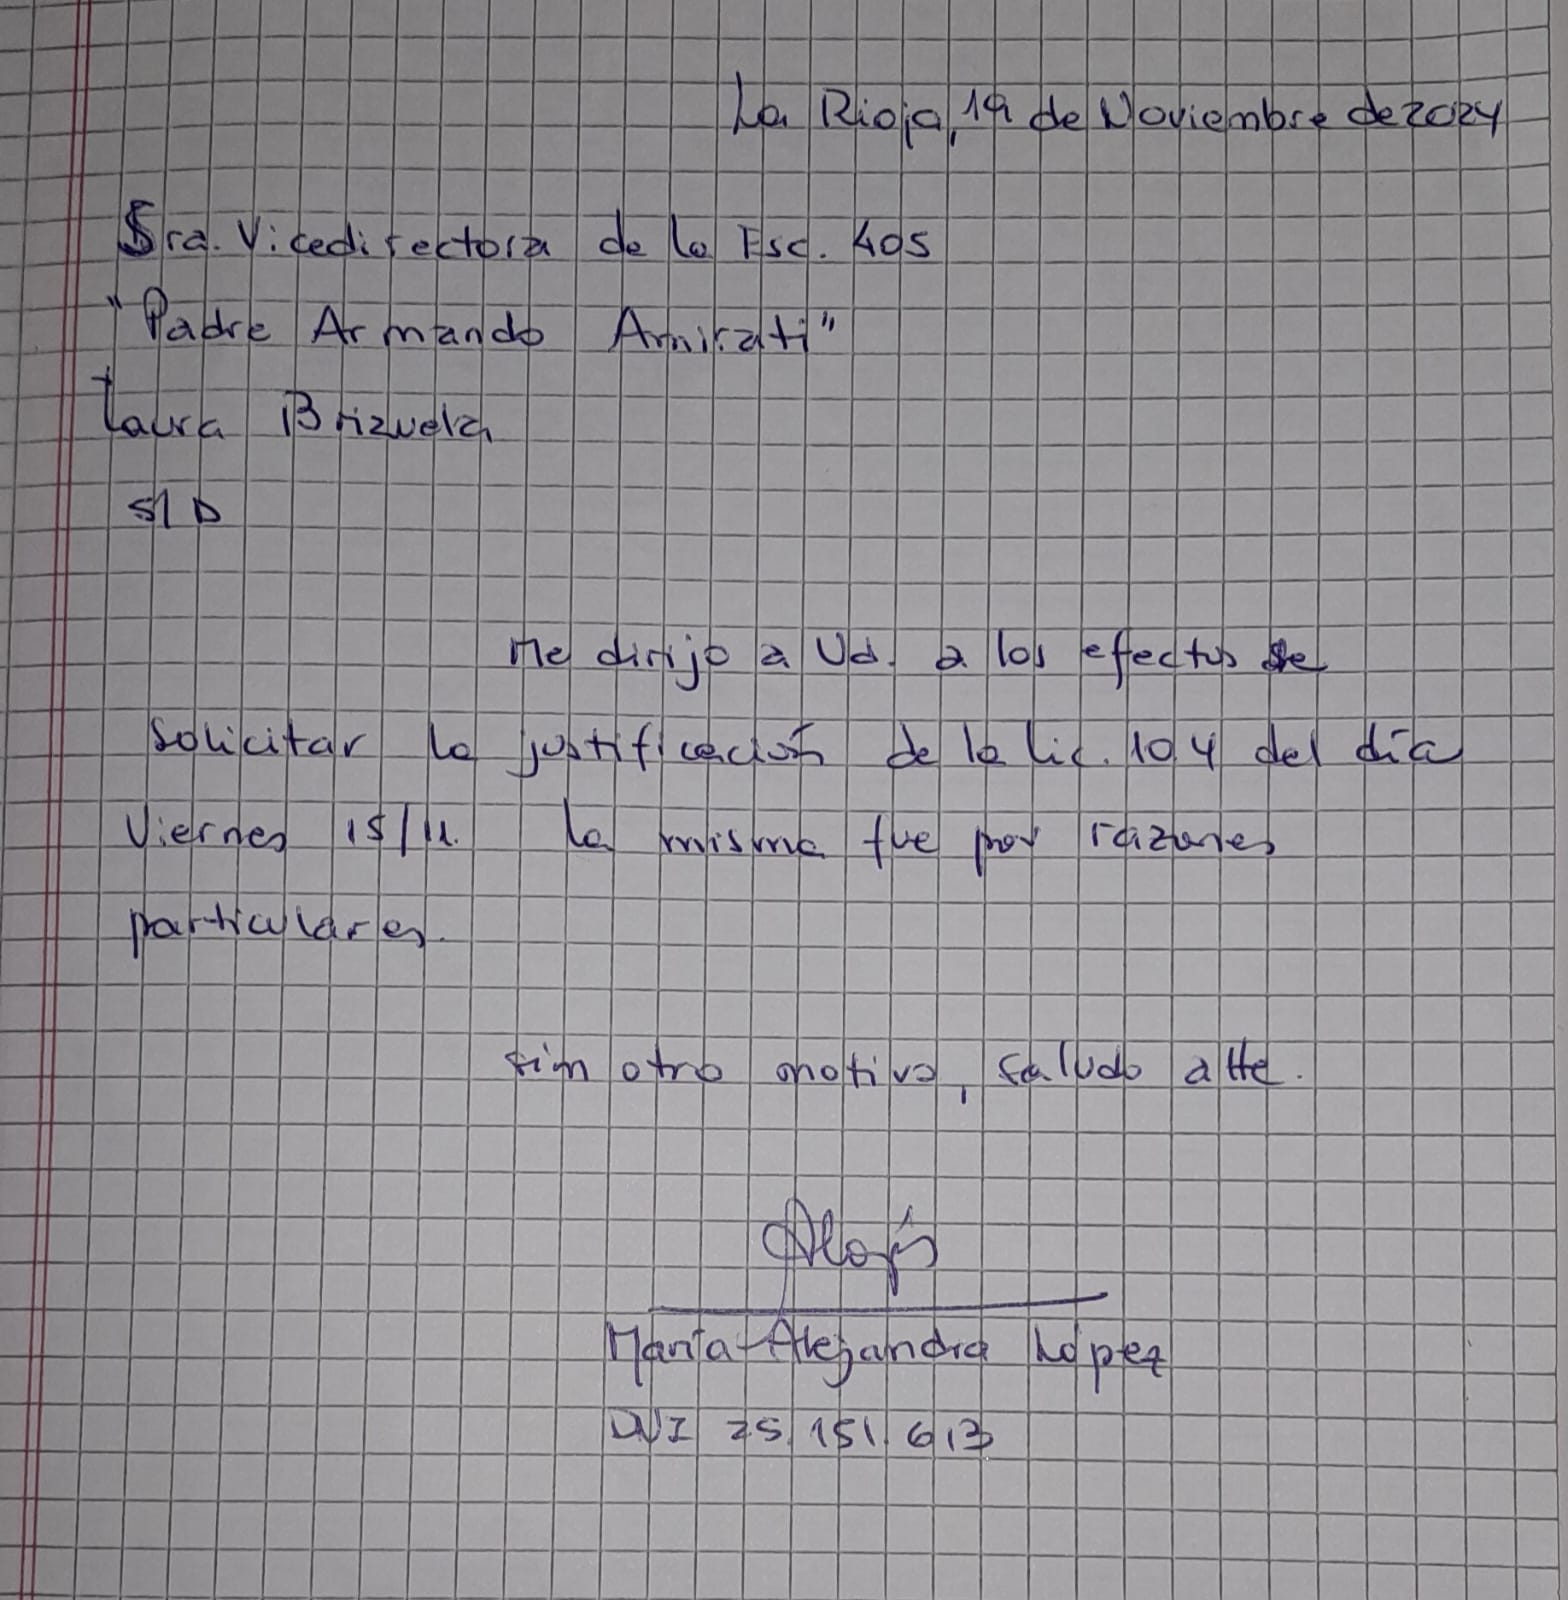 La Rioja, 19 de Noviembre de 2024
Sra. Vicedirectora de la Esc. 405
"Padre Armando Amirati"
Laura Brizuela
S/D
Me dirijo a Ud. a los efectos de
solicitar la justificación de la lic. 104 del día
Viernes 15/11. La misma fue por razones
particulares.
Sin otro motivo, saludo atte.
María Alejandra López
DNI 25.151.613